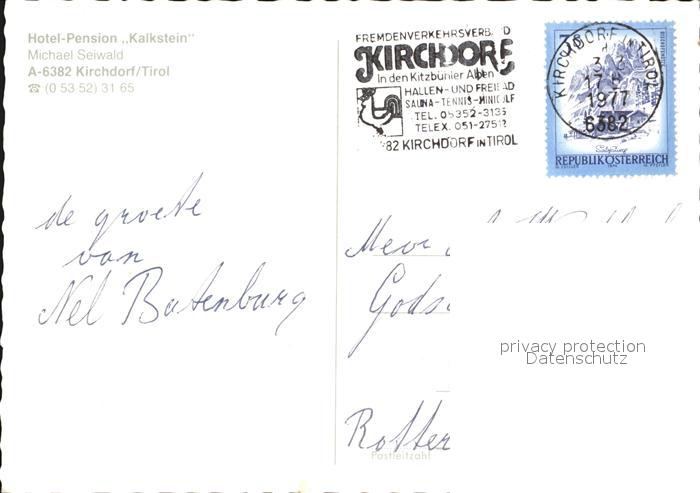 Hotel-Pension „Kalkstein"
Michael Seiwald
A-6382 Kirchdorf/Tirol
☎ (0 53 52) 31 65
FREMDENVERKEHRSVERB D
KIRCHDORF
In den Kitzbühler Alpen
HALLEN- UND FREIBAD
SAUNA-TENNIS-MINIGOLF
TEL. 05352-3136
TELEX. 051-27512
82 KIRCHDORF IN TIROL
KIRCHDORF IN TIROL
1977
6382
REPUBLIK ÖSTERREICH
de groete
van
Nel Batenburg
Mevr
Gods
privacy protection
Datenschutz
Rotter
Postleitzahl